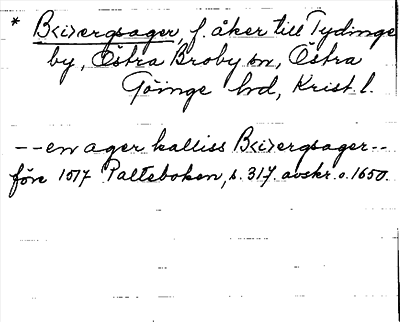 * B<i>ergsager, f. åker till Tydinge
by, Östra Broby sn, Östra
Göinge hd, Krist. l.
-- en ager kalliss B<i>ergsager --
före 1517 Palteboken, s. 317. avskr. o. 1650.